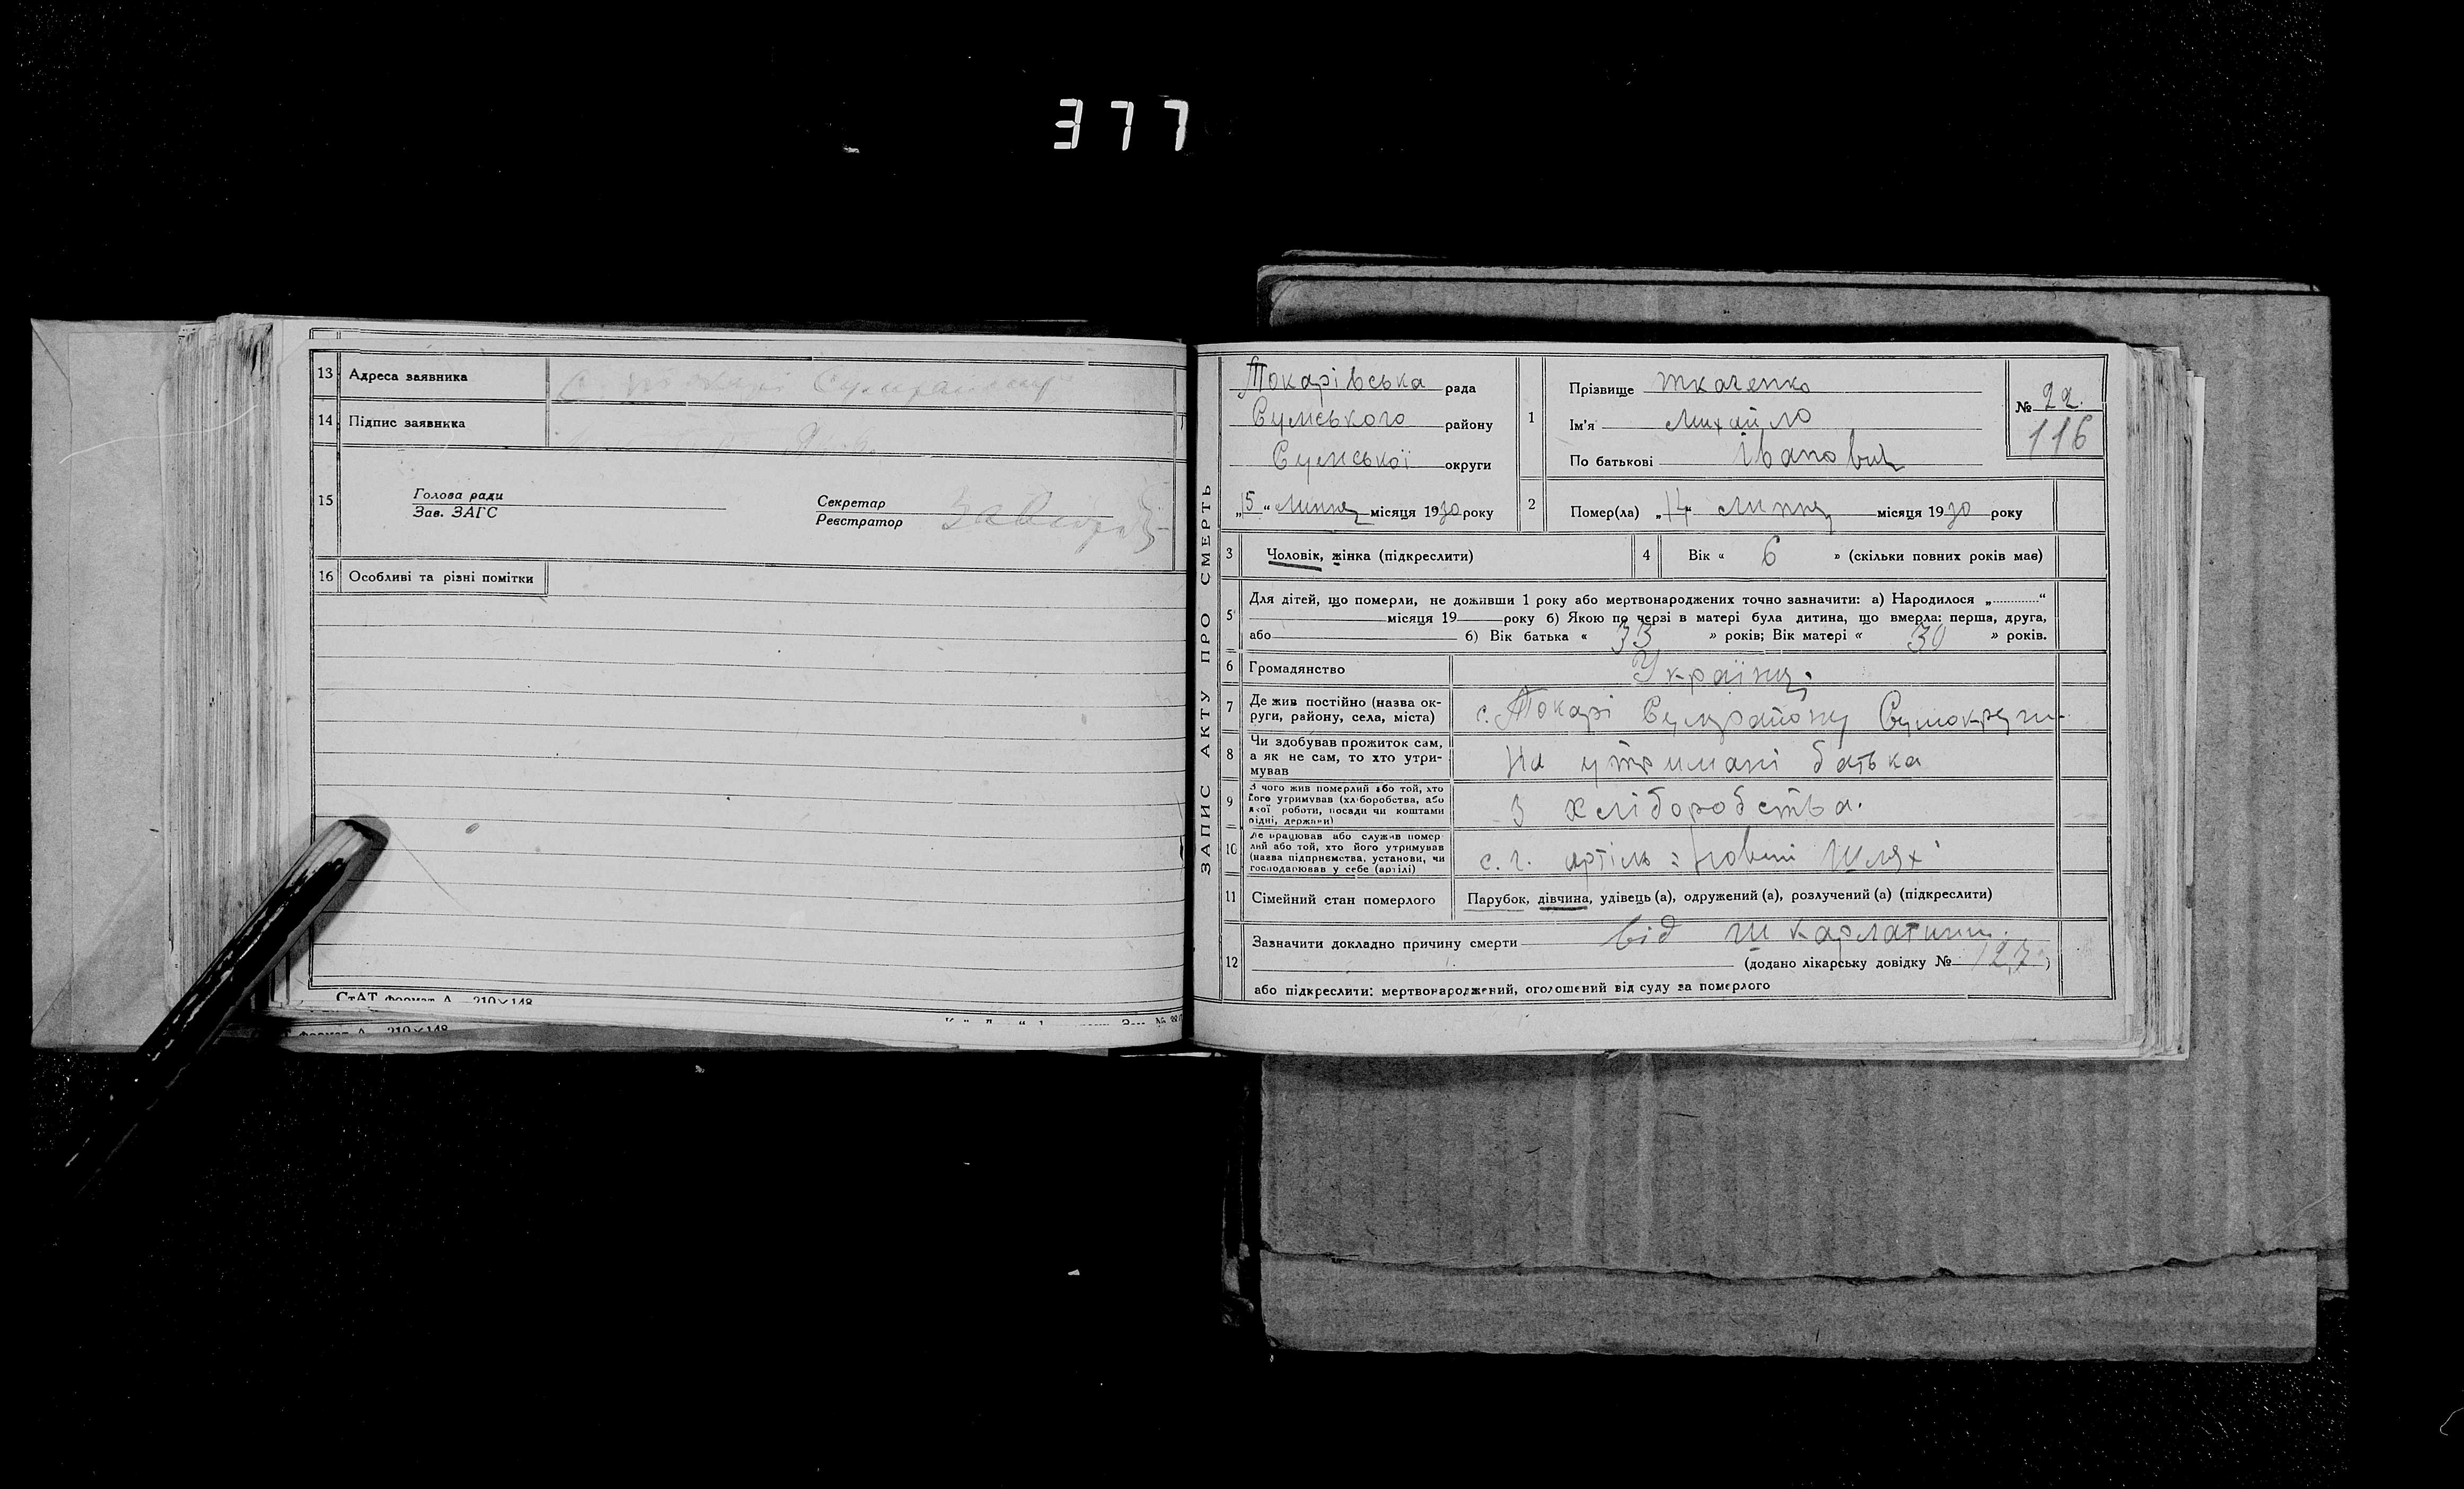 377
13 Адреса заявника
14 Підпис заявника
15 Голова ради
Зав. ЗАГС
Секретар
Реєстратор
16 Особливі та різні помітки
СтАТ формат А 210×148
формат А 210×148
ЗАПИС АКТУ ПРО СМЕРТЬ
Токарівська рада
Сумського району
Сумської округи
„15“ липня місяця 1930 року
1 Прізвище Ткаченко
Ім'я Михайло
По батькові Іванович
№ 22.
116
2 Помер(ла) „14“ липня місяця 1930 року
3 Чоловік, жінка (підкреслити)
4 Вік « 6 » (скільки повних років має)
5 Для дітей, що померли, не доживши 1 року або мертвонароджених точно зазначити: а) Народилося „............“
місяця 19 року б) Якою по черзі в матері була дитина, що вмерла: перша, друга,
або б) Вік батька « 33 » років; Вік матері « 30 » років.
6 Громадянство
7 Де жив постійно (назва ок-
руги, району, села, міста) с. Токарі Сумрайону
8 Чи здобував прожиток сам,
а як не сам, то хто утри-
мував На утримані батька
9 З чого жив померлий або той, хто
його утримував (хліборобства, або
якої роботи, посади чи коштами
рідні, держави) З хліборобства.
10 Де працював або служив помер
лий або той, хто його утримував
(назва підприємства, установи, чи
господарював у себе (артілі) с. г. артіль: Новий Шлях
11 Сімейний стан померлого Парубок, дівчина, удівець (а), одружений (а), розлучений (а) (підкреслити)
12 Зазначити докладно причину смерти від шкарлатини.
(додано лікарську довідку № 127)
або підкреслити: мертвонароджений, оголошений від суду за померлого